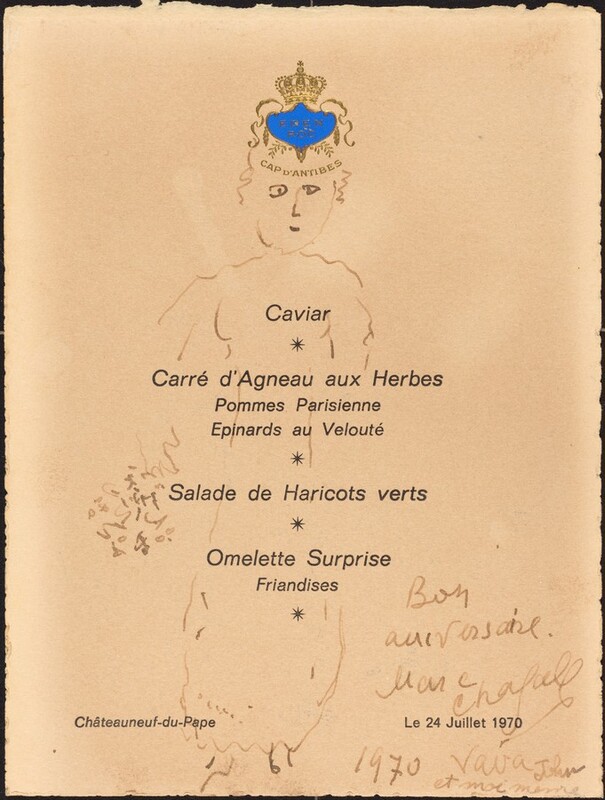 EDEN
ROC
CAP D'ANTIBES
Caviar
Carré d'Agneau aux Herbes
Pommes Parisienne
Epinards au Velouté
Salade de Haricots verts
Omelette Surprise
Friandises
Bon
anniversaire.
Marc
Chagall
Châteauneuf-du-Pape
Le 24 Juillet 1970
1970 Vava John
et moi meme